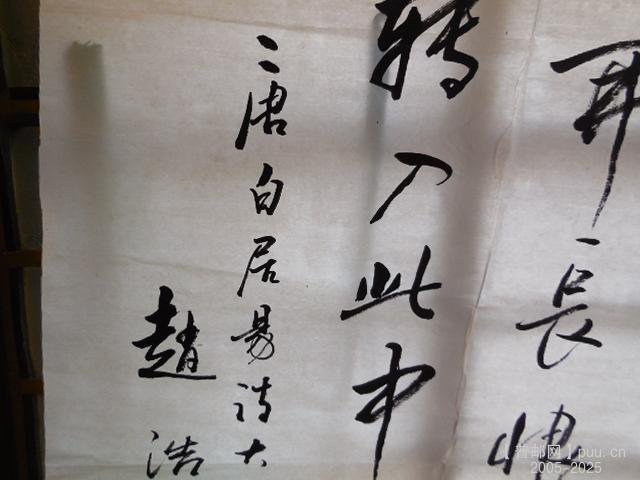 开長恨
轉入此中
二唐白居易詩大
趙浩
【普邮网】puu.cn
2005-2025